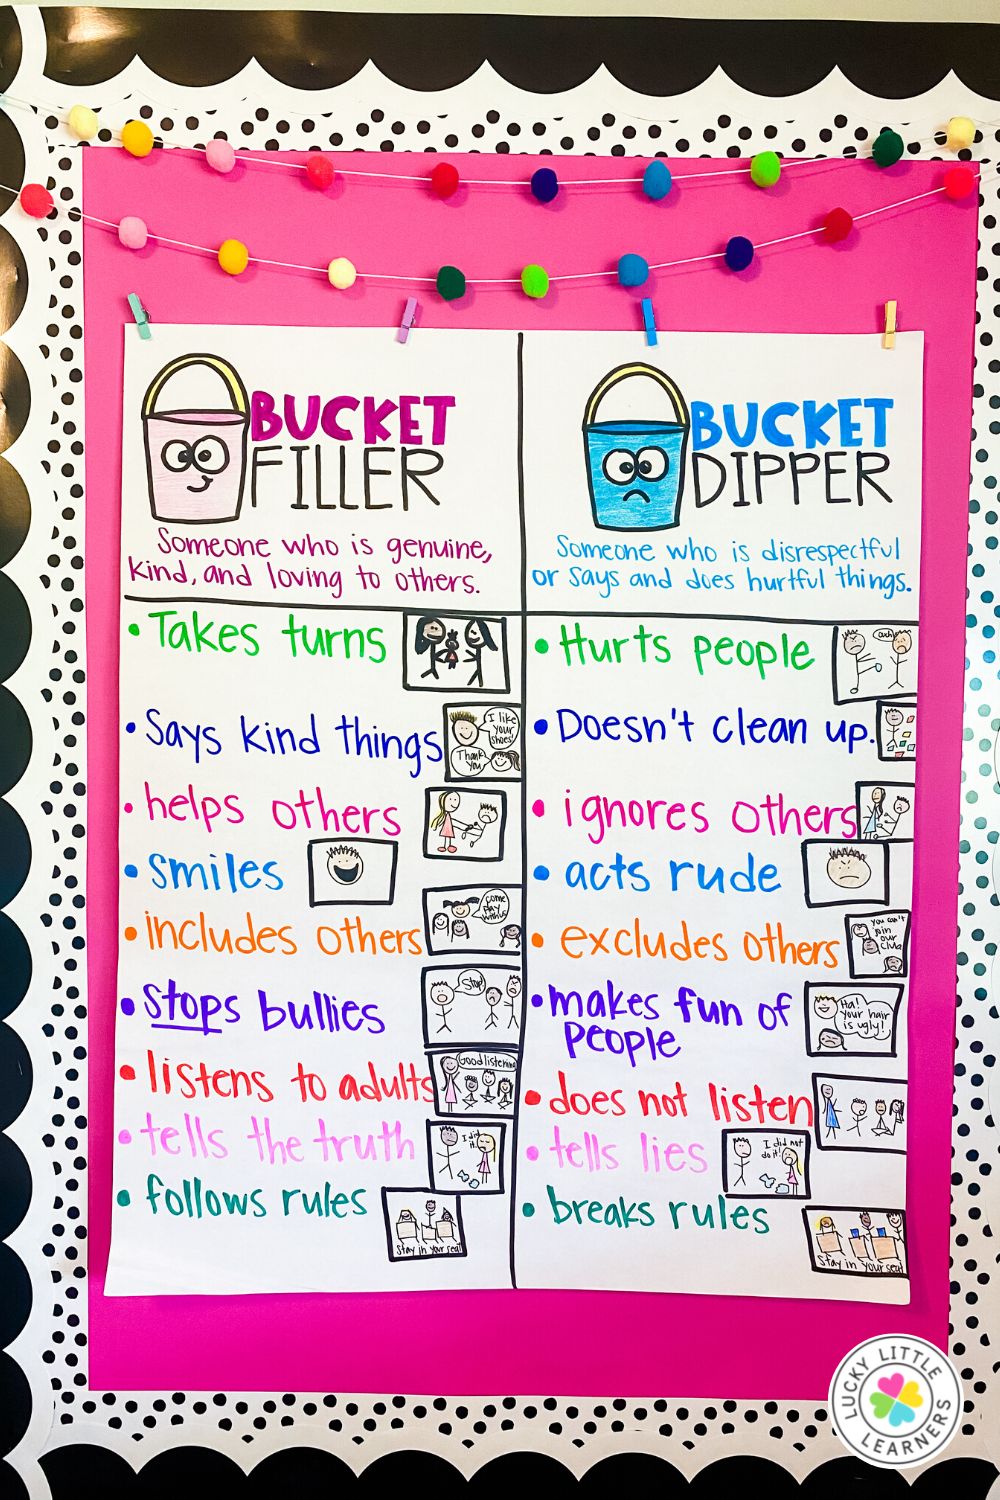 BUCKET
FILLER
Someone who is genuine,
kind, and loving to others.
• Takes turns
• Says kind things
I like
your
shoes!
Thank
you
• helps others
• smiles
• includes others
come
play
with us
• stops bullies
Stop!
• listens to adults
Good listening
• tells the truth
I did
it!
• follows rules
Stay in your seat
BUCKET
DIPPER
Someone who is disrespectful
or says and does hurtful things.
• Hurts people
ouch
• Doesn't clean up.
• ignores others
• acts rude
• excludes others
you can't
join
our
club
• makes fun of
people
Ha!
Your hair
is ugly!
• does not listen
• tells lies
I did not
do it!
• breaks rules
Stay in your seat
LUCKY LITTLE
LEARNERS